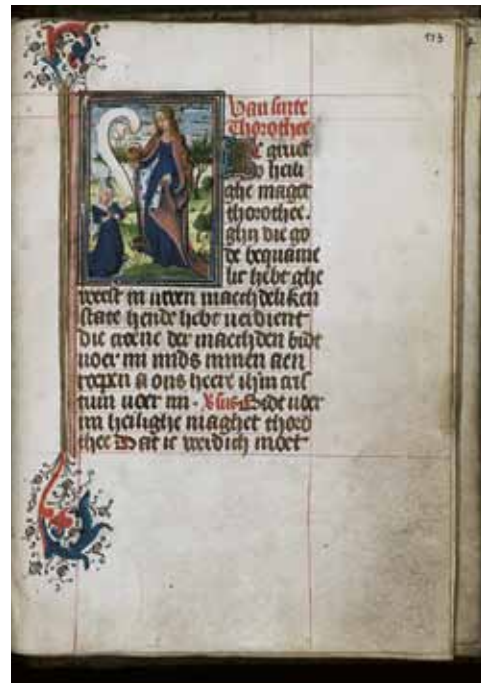 113
Van sinte
Thorothee
Ic gruet
v heili
ghe maget
thorothee.
ghy die go
de bequame
lic hebt ghe
weest in uwen maechdeliken
state hende hebt verdient
die crone der maechden bidt
voer mi mids minen aen
roepen a ons heere ihm cris
tum voer mi. Vsus Bidt voer
mi heilighe maghet thoro
thee Dat ic werdich moet